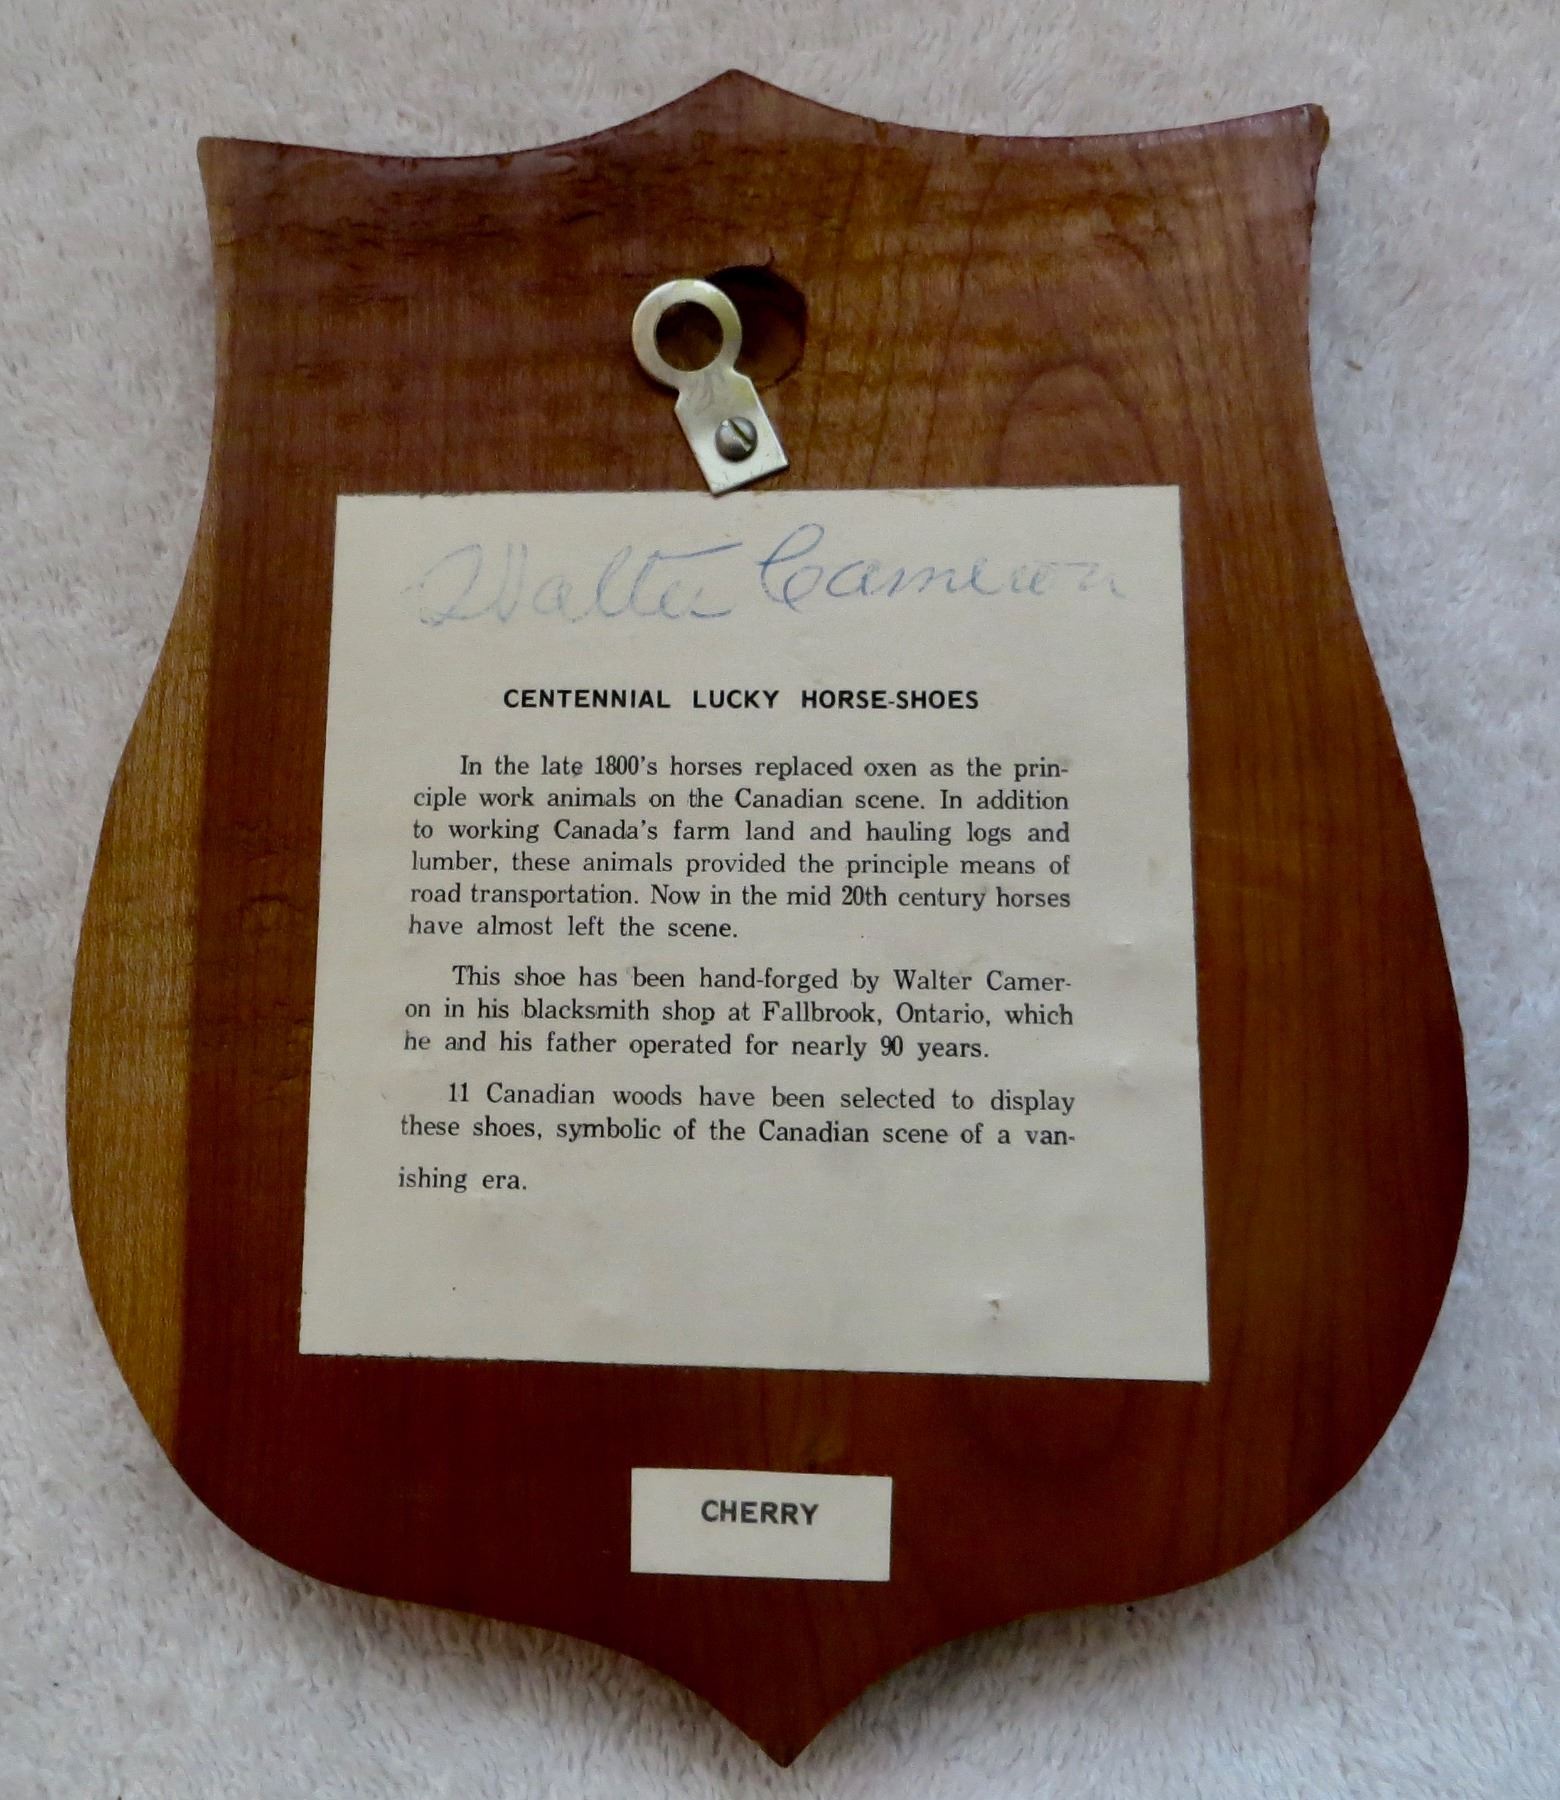 Walter Cameron
CENTENNIAL LUCKY HORSE-SHOES
In the late 1800's horses replaced oxen as the prin-
ciple work animals on the Canadian scene. In addition
to working Canada's farm land and hauling logs and
lumber, these animals provided the principle means of
road transportation. Now in the mid 20th century horses
have almost left the scene.
This shoe has been hand-forged by Walter Camer-
on in his blacksmith shop at Fallbrook, Ontario, which
he and his father operated for nearly 90 years.
11 Canadian woods have been selected to display
these shoes, symbolic of the Canadian scene of a van-
ishing era.
CHERRY